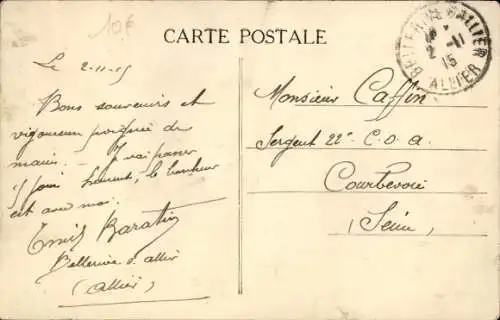 10€
CARTE POSTALE
BELLERIVE ALLIER
2 -11
15
ALLIER
Le 2-11-15
Bons souvenirs et
vigoureuse poignée de
mains. - J'irai passer
le bonheur
est avec moi.
Emile Baratin
Bellerive s. allier
(Allier)
Monsieur Caffin
Sergent 22e C.O.a.
Courbevoie
(Seine)